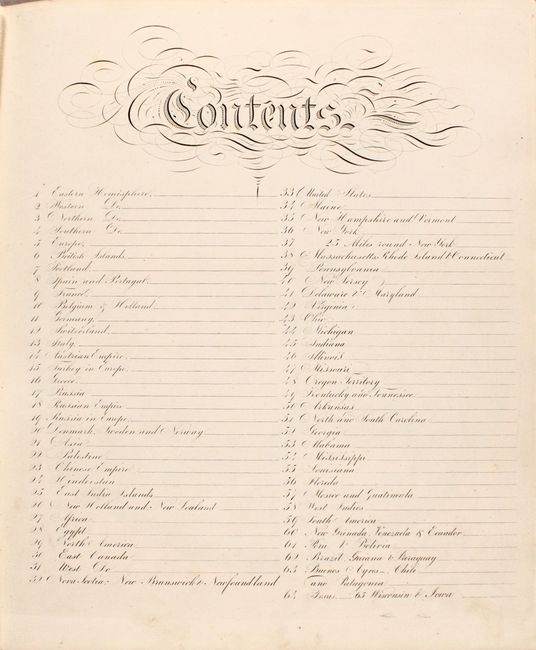 Contents.
1 Eastern Hemisphere
2 Western Do.
3 Northern Do.
4 Southern Do
5 Europe
6 British Islands
7 Scotland
8 Spain and Portugal
9 France
10 Belgium & Holland
11 Germany
12 Switzerland
13 Italy
14 Austrian Empire
15 Turkey in Europe
16 Greece
17 Prussia
18 Russian Empire
19 Russia in Europe
20 Denmark, Sweden and Norway
21 Asia
22 Palestine
23 Chinese Empire
24 Hindoostan
25 East India Islands
26 New Holland and New Zealand
27 Africa
28 Egypt
29 North America
30 East Canada
31 West Do.
32 Nova Scotia, New Brunswick & Newfoundland
33 United States
34 Maine
35 New Hampshire and Vermont
36 New York
37 25 Miles round New York
38 Massachusetts Rhode Island & Connecticut
39 Pennsylvania
40 New Jersey
41 Delaware & Maryland
42 Virginia
43 Ohio
44 Michigan
45 Indiana
46 Illinois
47 Missouri
48 Oregon Territory
49 Kentucky and Tennessee
50 Arkansas
51 North and South Carolina
52 Georgia
53 Alabama
54 Mississippi
55 Louisiana
56 Florida
57 Mexico and Guatemala
58 West Indies
59 South America
60 New Grenada, Venezuela & Ecuador
61 Peru & Bolivia
62 Brazil, Guiana & Paraguay
63 Buenos Ayres, Chili
and Patagonia
64 Texas 65 Wisconsin & Iowa